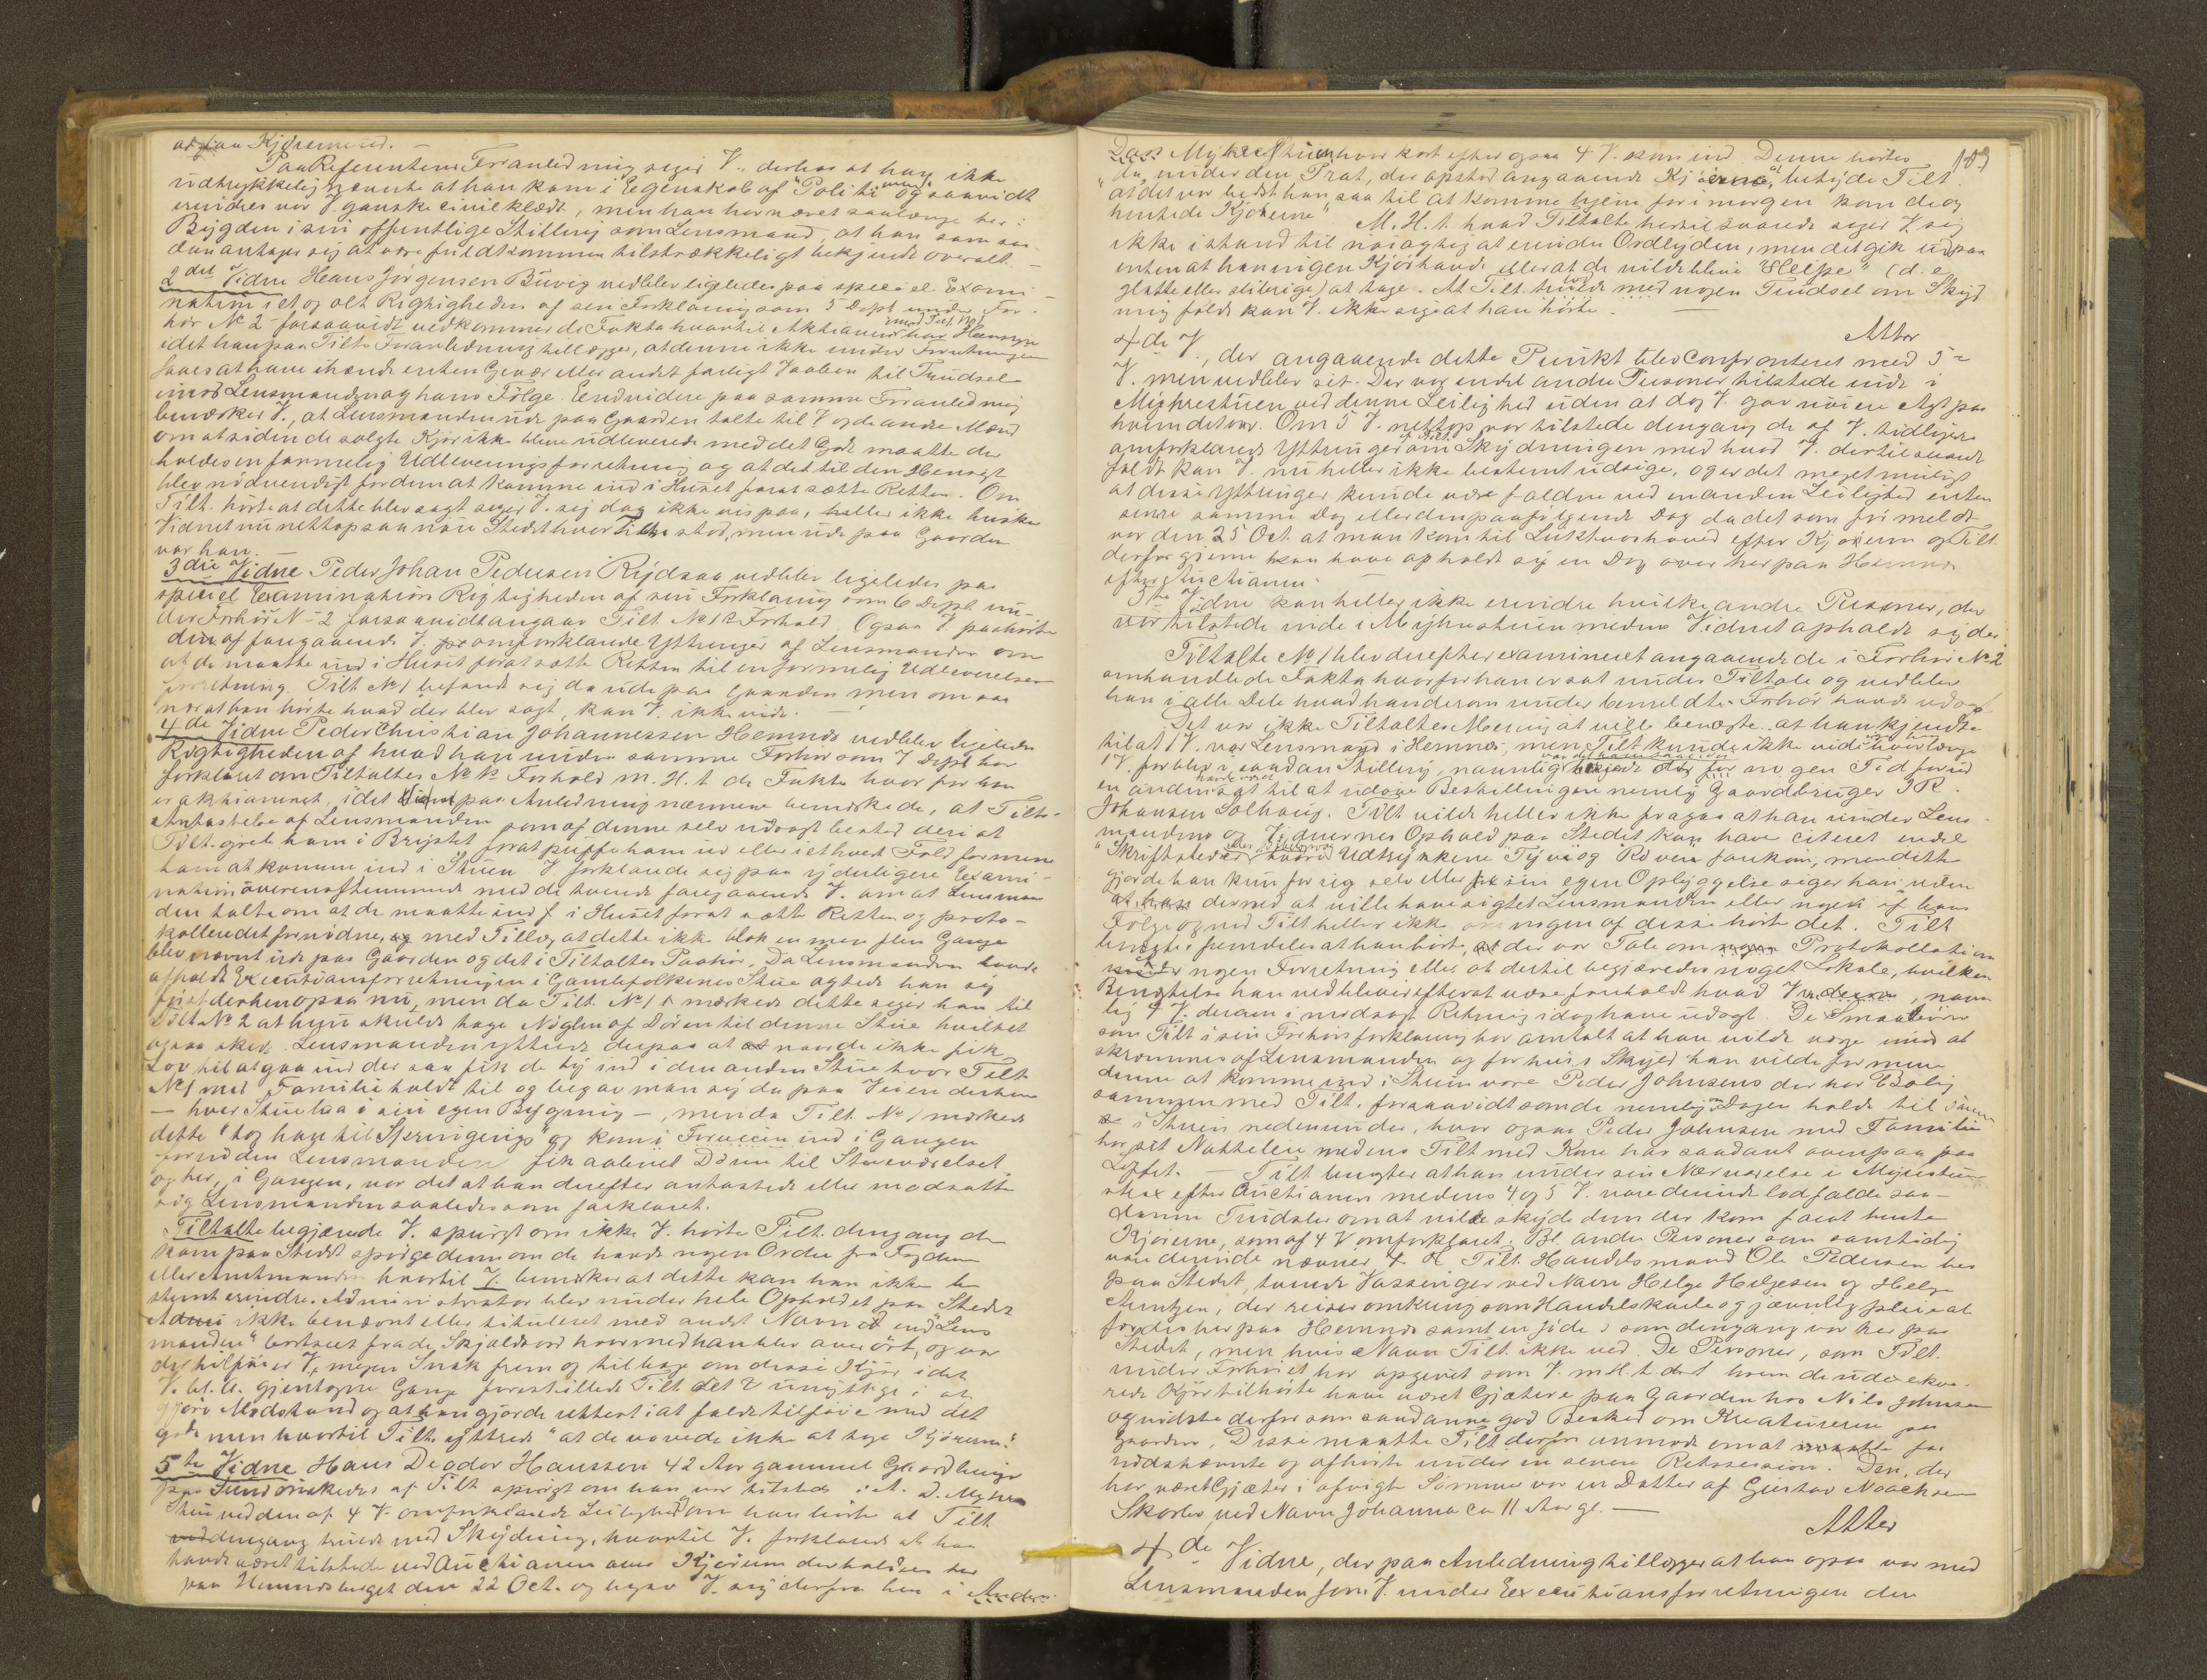 at faa Kjørerne ud. —
Paa Referentens Foranledning siger V. derhos at han ikke
udtrykkelig nævnte at han kom i Egenskab af "Politi" og saavidt
erindres var V. ganske civilklædt, men han har været saalænge her i
Bygden i sin offentlige Stilling som Lensmand, at han som saa-
dan antager sig at være fuldtkommen tilstrækkeligt bekjendt overalt. —
2det Vidne Hans Jørgensen Buvig vedblev ligeledes paa speciel Exami-
nation i et og alt Rigtigheden af sin Forklaring som 5 Dept. under For-
hør No 2 forsaavidt vedkommer de Fakta hvortil Aktionen mod Tilt. No 1 har Hensyn
idet han paa Tilts Foranledning tillægger, at denne ikke under Forretningen
saaes at have ihænde enten Gevær eller andet farligt Vaaben til Trudsel
imod Lensmanden og hans Følge. Endvidere paa samme Foranledning
bemærker V., at Lensmanden ude paa Gaarden talte til V og de andre Mænd
om at siden de solgte Kjør ikke bleve udleverede med det Gode maatte der
holdes en formelig Udleveringsforretning og at det til den Hensigt
blev nødvendigt for dem at komme ind i Huset forat sætte Retten. Om
Tilt. hørte at dette blev sagt siger V. sig dog ikke vis paa, heller ikke husker
Vidnet nu nettop saa nøie Stedet hvor Tilt. stod, men ude paa Gaarden
var han. —
3die Vidne Peder Johan Pedersen Rydsaa vedblev ligeledes paa
speciel Examination Rigtigheden af sin Forklaring som 6 Dept. un-
der Forhør No 2 forsaavidt angaar Tilt. No 1s Forhold. Ogsaa V. paahørte
den af foregaaende V. omforklarede Yttringer af Lensmanden om
at de maatte ind i Huset forat sætte Retten til en formelig Udleverelses-
forretning. Tilt No 1 befandt sig da ude paa Gaarden, men om saa
nær at han hørte hvad der blev sagt, kan V. ikke vide. —
4de Vidne Peder Christian Johannessen Hemnes vedblev ligeledes
Rigtigheden af hvad han under samme Forhør som 7 Dept. har
forklaret om Tiltaltes No 1s Forhold m. H. t. de Fakta hvorfor han
er aktioneret, idet Vidnet paa Anledning nærmere bemærkede, at Tilts.
Antastelse af Lensmanden som af denne selv udsagt bestod deri at
Tilt. greb ham i Brystet forat puffe ham ud eller i ethvert Fald formene
ham at komme ind i Stuen V. forklarede sig paa yderligere Exami-
nation overensstemmende med de tvende foregaaende V. om at Lensman-
den talte om at de maatte ind i Huset forat sætte Retten og proto-
kollere det fornødne, med Tillæg at dette ikke blot en men flere Gange
blev nævnt ude paa Gaarden og det i Tiltaltes Paahør. Da Lensmanden havde
afholdt Executionsforretningen i Gamlefolkenes Stue agtede han sig
først derhen ogsaa nu, men da Tilt. No 1 mærkede dette siger han til
Tilt No 2 at hun skulde tage Nøglen af Døren til denne Stue hvilket
ogsaa skede. Lensmanden yttrede derpaa at naar de ikke fik
Lov til at gaa ind der saa fik de ty ind i den anden Stue hvor Tilt
No 1 med Familie holdt til og begav man sig da paa Veien derhen
— hver Stue laa i sin egen Bygning —, men da Tilt. No 1 mærkede
dette "tog han til Springings" og kom i Forveien ind i Gangen
førend den Lensmanden fik aabnet Døren til Stueværelset
og her, i Gangen, var det at han derefter antastede eller modsatte
sig Lensmanden saaledes som forklaret.
Tiltalte begjærede V. spurgt om ikke V. hørte Tilt. dengang de
kom paa Stedet spørge dem om de havde nogen Ordre fra Fogden
eller Amtmanden hvortil V. bemærker at dette kan han ikke be-
stemt erindre. Administrator blev under hele Opholdet paa Stedet
ikke benævnt eller tituleret med andet Navn end "Lens
manden" bortseet fra de Skjældsord hvormed han blev overøst, og var
der tilføier V. megen Snak frem og tilbage om disse Kjør idet
V. bl. a. gjentagne Gange forestillede Tilt. det unyttige i at
gjøre Modstand og at han gjorde rettest i at falde tilføie med det
gode men hvortil Tilt. yttrede "at de vovede ikke at tage Kjørerne".
5te Vidne Hans Deodor Hanssen 42 Aar gammel Gaardbruger
paa Sund ønskedes af Tilt spurgt om han var tilstede i A. D. Myhres
Stue ved den af 4 V. omforklarede Leilighed om han hørte at Tilt
dengang truede med Skydning, hvortil V. forklarede at han
havde været tilstede ved Auctionen over Kjørerne der holdtes her
paa Hemnesberget den 22 Oct. og begav V. sig derfra hen i Anders
103
Dass Myhrestuen hvor kort efter ogsaa 4 V. kom ind. Denne hørtes
da, under den Prat, der opstod angaaende Kjørerne, at betyde Tilt
"at det var bedst han saa til at komme hjem for imorgen kom de og
hentede Kjørerne" M. H. t. hvad Tiltalte hertil svarede siger V. sig
ikke istand til nøiagtig at erindre Ordlyden, men det gik ud paa
enten at han ingen Kjør havde eller at de vilde blive "Sleipe" (d. e.
glatte eller slibrige) at tage. At Tilt. truede med nogen Trudsel om Skyd
ning faldt kan V. ikke sige at han hørte. —
Atter
4de V., der angaaende dette Punkt blev confronteret med 5te
V. men vedblev sit. Der var endel andre Personer tilstede inde i
Myhrestuen ved denne Leilighed uden at dog V. gav nøiere Agt paa
hvem det var. Om 5 V. nettop var tilstede dengang de af V. tidligere
omforklarede Yttringer af Tilt. om Skydningen med hvad V. dertil svarede
faldt kan V. nu heller ikke bestemt udsige, og er det meget muligt
at disse Yttringer kunde være faldne ved en anden Leilighed enten
senere samme Dag eller den paafølgende Dag da det som før meldt
var den 25 Oct. at man kom til Luktvashoved efter Kjørerne og Tilt.
derfor gjerne kan have opholdt sig en Dag over her paa Hemnes
efter Auctionen. —
5te Vidne kan heller ikke erindre hvilke andre Personer, der
var tilstede inde i Myhrestuen medens Vidnet opholdt sig der.
Tiltalte No 1 blev derefter examineret angaaende de i Forhør No 2
omhandlede Fakta hvorfor han er sat under Tiltale og vedblev
han i alle Dele hvad han derom under bemeldte Forhør havde udsagt
Det var ikke Tiltaltes Mening at ville benægte at han kjendte
til at 1 V. var Lensmand i Hemnes, men Tilt kunde ikke vide hvor længe
1 V. forblev i saadan Stilling, navnlig da for nogen Tid forud
en anden havde været sagt til at udøve Bestillingen nemlig Gaardbruger I R.
Johansen Solhaug. Tilt vilde heller ikke fragaa at han under Lens-
mandens og Vidnernes Ophold paa Stedet kan have citeret endel
"Skriftsteder", hvori Udtrykkene "Tyve" og "Røvere" forekom, men dette
gjorde han kun for sig selv eller sin egen Opbyggelse siger han uden
dermed at ville have sigtet Lensmanden eller nogen af hans
Følge og ved Tilt heller ikke om nogen af disse hørte det. Tilt
benægter fremdeles at han hørte, der var Tale om Protokollation
nogen Forretning eller at dertil begjæredes noget Lokale, hvilken
Benægtelse han vedbliver efterat være foreholdt hvad V. derom, navn
lig 4 V. derom i modsagt Retning idag have udsagt. De Smaabørn
som Tilt i sin Forhørsforklaring har omtalt at han vilde værge imod at
skræmmes af Lensmanden og for hvis Skyld han vilde formene
denne at komme ind i Stuen vare Peder Johnsens der har Bolig
sammen med Tilt. forsaavidt som de nemlig om Dagen holdt til sammen
i Stuen nedenunder, hvor ogsaa Peder Johnsen med Familie
har sit Natteleie medens Tilt med Kone har saadant ovenpaa paa
Loftet. — Tilt benægter at han under sin Nærværelse i Myrestuen
strax efter Auctionen medens 4 og 5 V. vare derinde lod falde saa-
danne Trudsler om at ville skyde dem der kom forat hente
Kjørerne, som af 4 V omforklaret. Bl. andre Personer som samtidig
vare derinde nævner Tilt. Handelsmand Ole Pedersen her
paa Stedet, tvende Vossinger ved Navn Helge Helgesen og Helge
Arntzen, der reiser omkring som Handelskarle og jævnlig pleier at
færdes her paa Hemnes samt en Jøde, som dengang var her paa
Stedet, men hvis Navn Tilt. ikke ved. De Personer, som Tilt.
under Forhøret har opgivet som V. m. H. t. det hvem de udekve-
rede Kjør tilhørte have været Gjætere paa Gaarden hos Nils Johnsen
og vidste derfor som saadanne god Besked om Kreaturerne paa
Gaarden. Disse maatte Tilt derfor anmode om at faa
indstævnte og afhørte under en senere Retssession. Den, der
har været Gjæter i afvigte Sommer var en Datter af Gustav Noachsen
Skorlev ved Navn Johanna ca 11 Aar gl. —
Atter
4de Vidne, der paa Anledning tillægger at han ogsaa var med
Lensmanden som V. under Executionsforretningen den